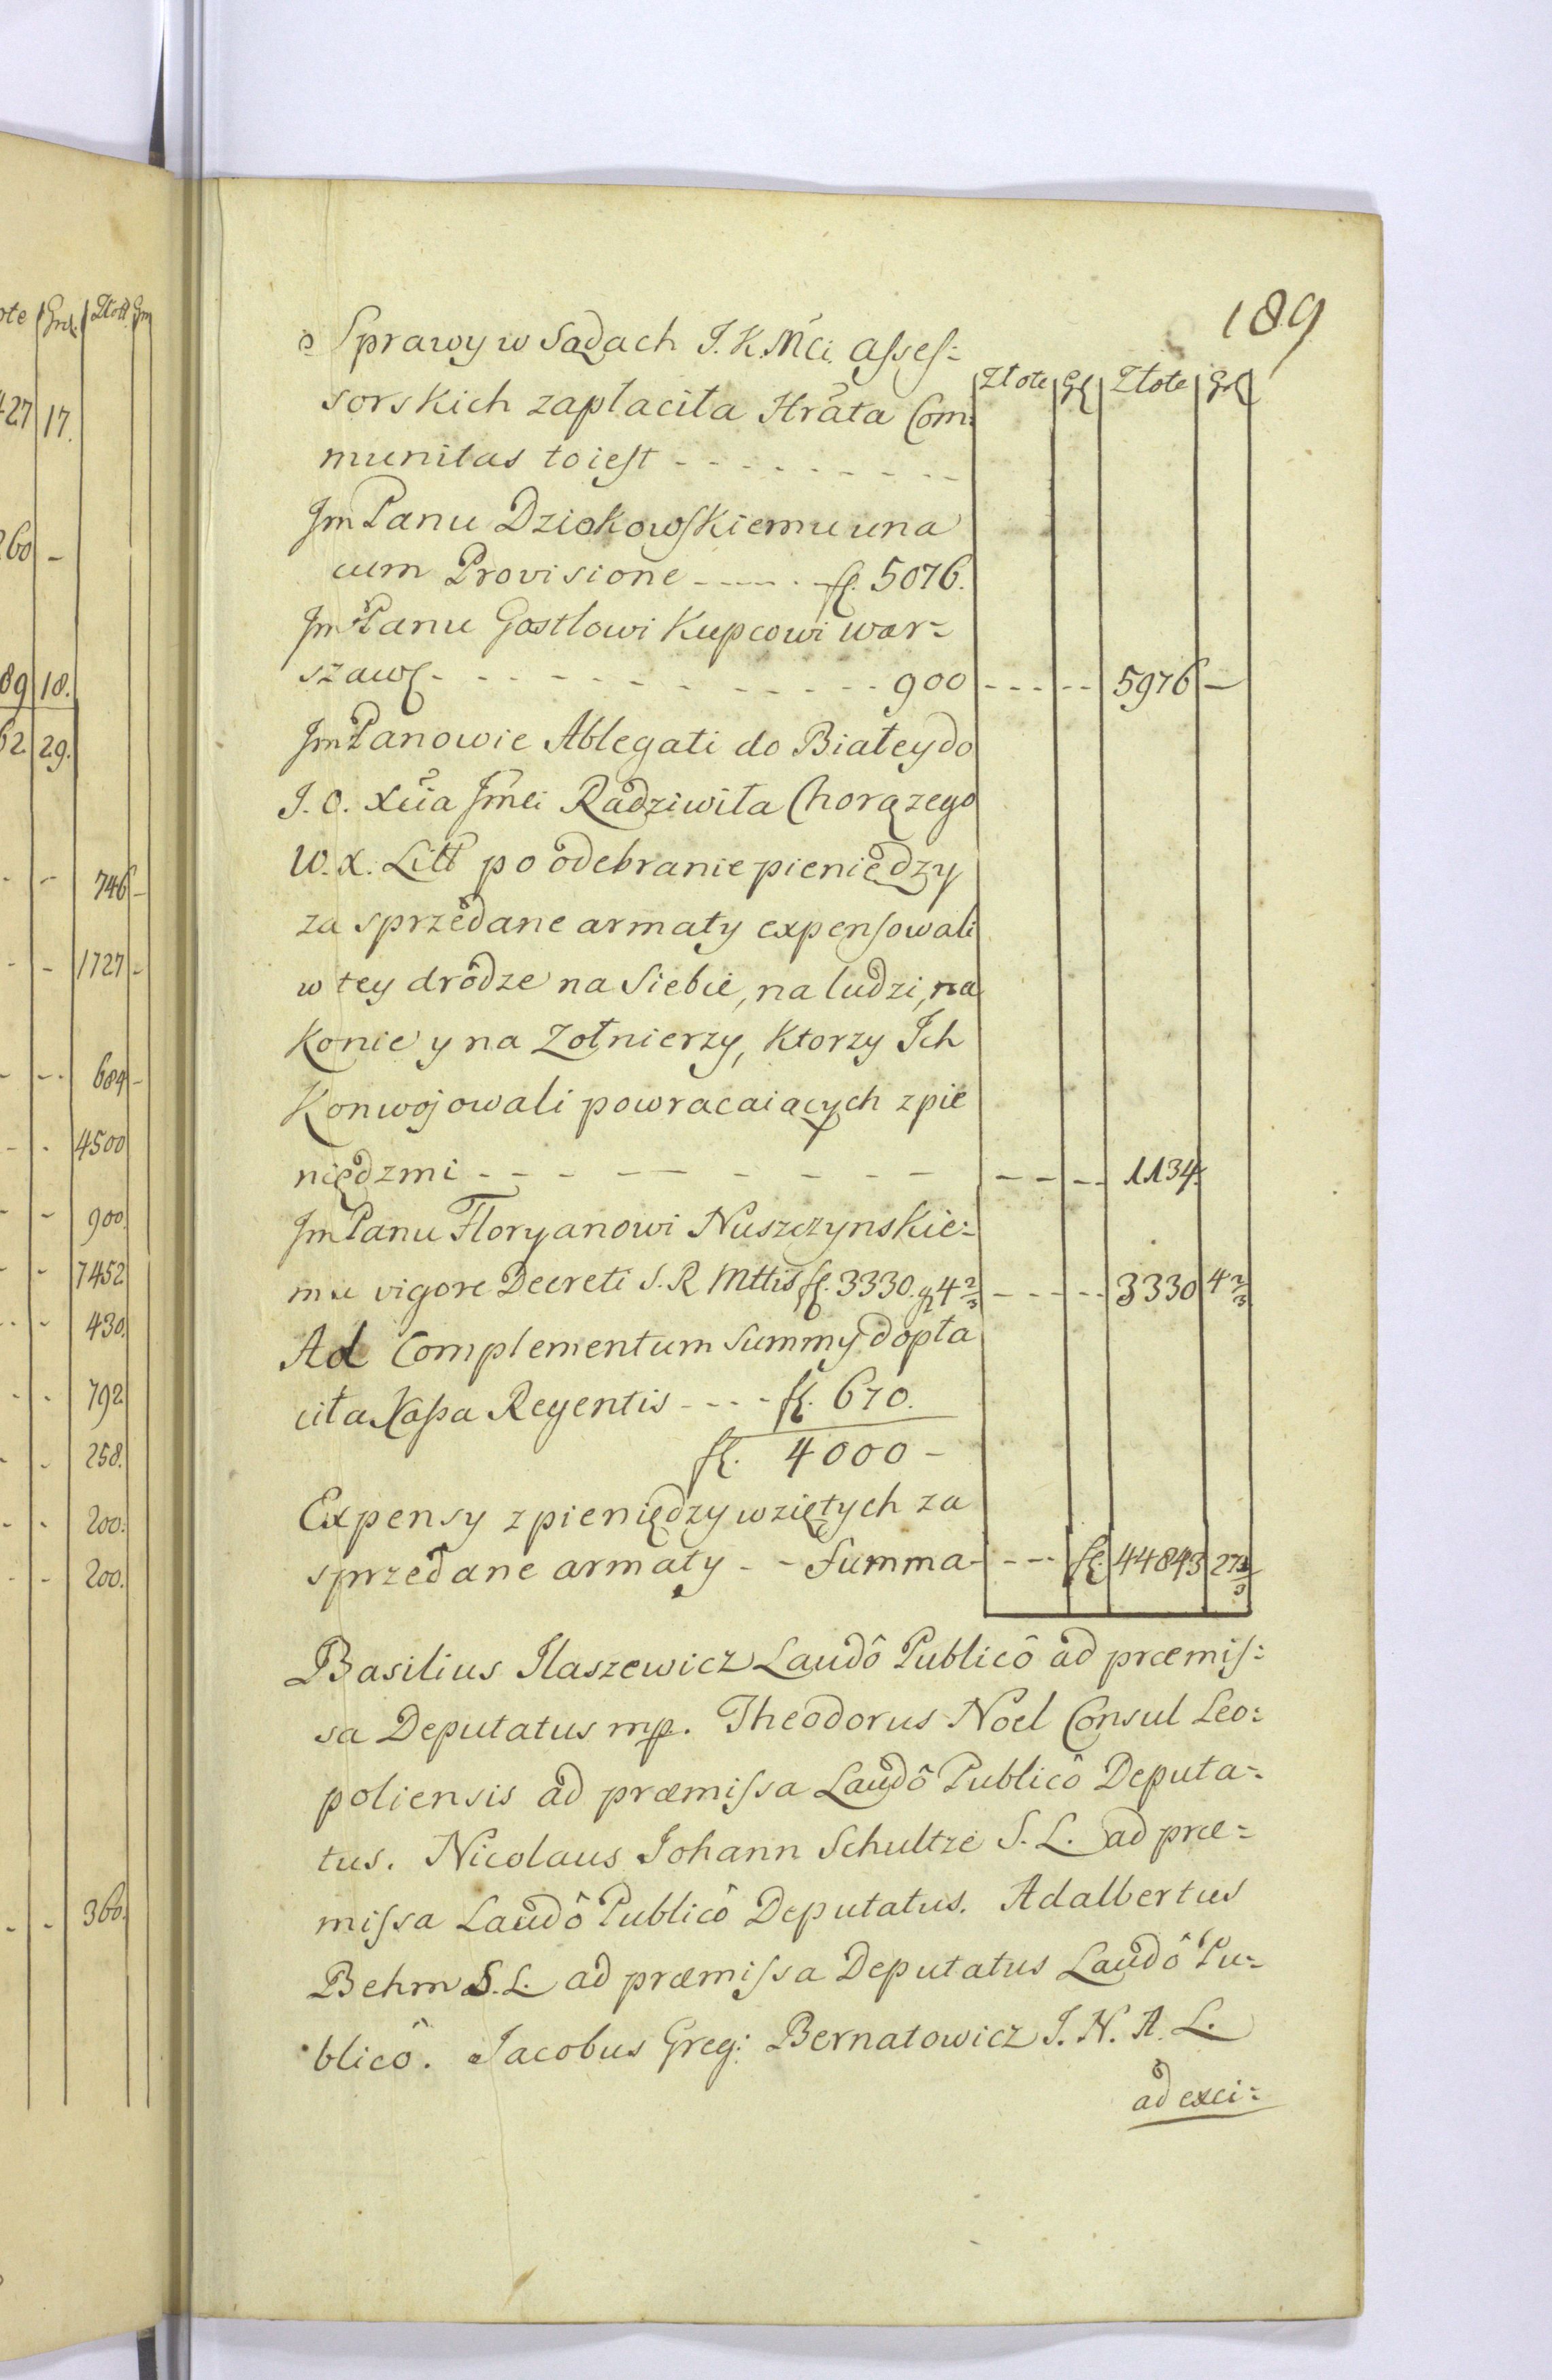 189
Złote | Gr | Złote | Gr
o Sprawy w Sądach J. K. Mci. Assesſ:
sorskich zapłaciła Hrata Com:
munitas toiest - - - - - - - - -
Jm Panu Dziokowskiemu una
cum Provisione - - - - - fl. 5076.
Jm Panu Gostlowi Kupcowi war=
szaws - - - - - - - - - - - - 900 - - - - - 5976 -
Jm Panowie Ablegati do Białey do
J. O. Xcia Jmci Radziwiła Chorązego
W. X. Litt po odebranie pieniędzy
za sprzedane armaty expensowali
w tey drodze na Siebie, na ludzi, na
Konie y na Zołnierzy, Ktorzy Ich
Konwojowali powracaiących z pie
niędzmi - - - - - - - - - - - - - 1134.
Jm Panu Floryanowi Nuszczynskie=
mu vigore Decreti S. R Mttis fl. 3330. g 4 2/3 - - - - - 3330 4 2/3
Ad Complementum Summy dopła
ciła Kassa Regentis - - - - fl. 670.
fl. 4000 -
Expensy z pieniędzy wziętych za
sprzedane armaty - - Summa - - - - fl. 44843 27 2/3
Basilius Ilaszewicz Laudô Publicô ad præmiſ:
sa Deputatus mp. Theodorus Noel Consul Leo:
poliensis ad præmiſsa Laudô Publicô Deputa=
tus. Nicolaus Johann Schultze S. L. ad præ=
miſsa Laudô Publicô Deputatus. Adalbertus
Behm S. L. ad præmiſsa Deputatus Laudô Pu=
blicô. Jacobus Greg: Bernatowicz J. N. A. L.
ad exci=
ote | Grs. | Złott | Gm
427 | 17.
260 | -
89 | 18.
62 | 29.
- - 746 -
- - 1727 -
- - 684 -
- - 4500
- - 900.
- - 7452
- - 430.
- - 792
- - 258.
- - 200.
- - 200.
- - 360.